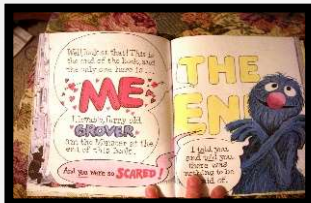 Well, look at that! This is
the end of the book, and
the only one here is...
ME
I, lovable, furry old
GROVER,
am the Monster at the
end of this book.
And you were so SCARED!
THE
END
I told you
and told you
there was
nothing to be
afraid of.